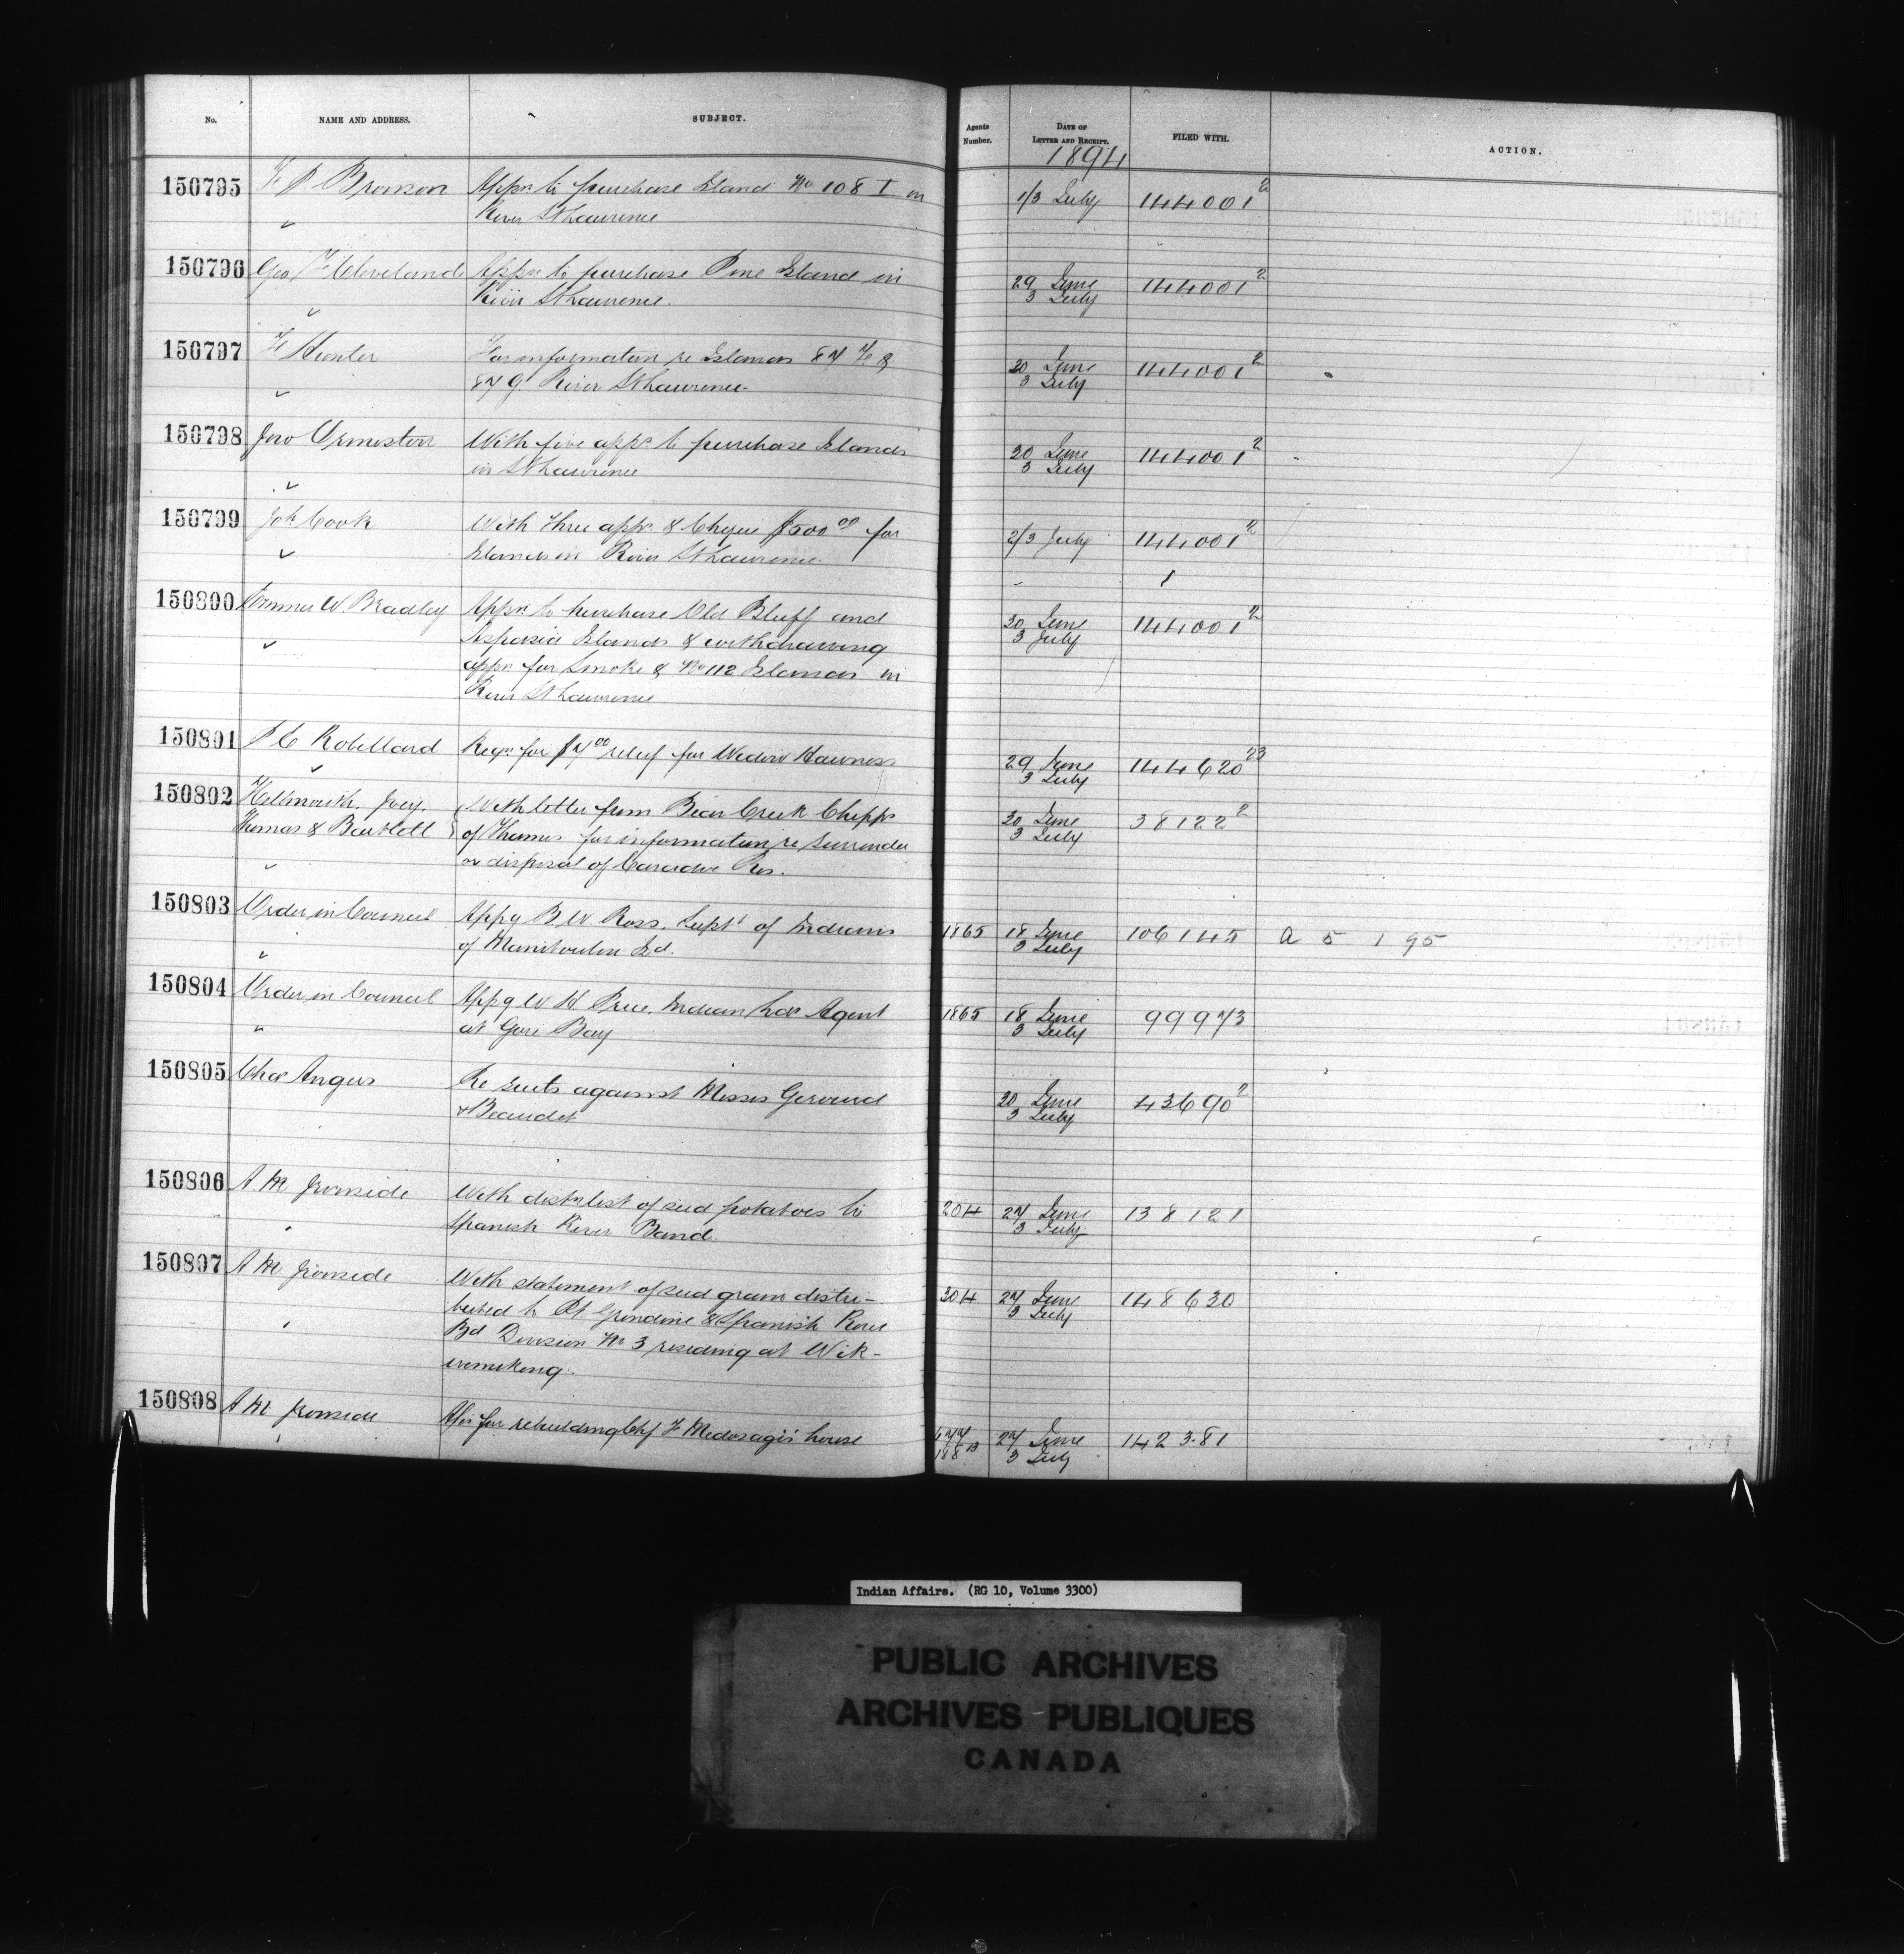 No. NAME AND ADDRESS. SUBJECT. Agents Number. DATE OF LETTER AND RECEIPT. FILED WITH. ACTION.
1894
150795 F P Bronson Appn to purchase Island No 108 I on 1/3 July 144001²
River St Lawrence
150796 Geo F Cleveland Appn to purchase Pine Island in 29 June 144001²
River St Lawrence. 3 July
150797 F Hunter For information re Islands 87 F & 30 June 144001²
87 G River St Lawrence 3 July
150798 Jno Ormiston With five appns to purchase Islands 30 June 144001²
in St Lawrence 3 July
150799 Joh Cook With three appns & Cheque $500 00 for 2/3 July 144001²
Islands in River St Lawrence
150800 W Bradley Appn to purchase Old Bluff and 30 June 144001²
Islands & withdrawing 3 July
appn for Smoke & No 112 Islands in
River St Lawrence
150801 P C Robillard Reqn for $7 00 relief for Widow 29 June 144620²³
3 July
150802 Hellmuth, Ivey, With letter from Bear Creek Chipps 30 June 38122²
& Bartlett of Thames for information re surrender 3 July
or disposal of Caradoc Res.
150803 Order in Council Appg B W Ross, Supt of Indians 1865 18 June 106145 a 5 1 95
of Manitoulin Id. 3 July
150804 Order in Council Appg W H Price, Indian Agent 1865 18 June 99973
at Gore Bay 3 July
150805 Chas Angus Re suits against Messrs 30 June 43690²
& Beaudet 3 July
150806 A. M Ironside With distn list of seed potatoes to 204 27 June 138121
Spanish River Band. 3 July
150807 A M Ironside With statement of seed grain distri- 304 27 June 148630
buted to Pt Grondine & Spanish River 3 July
Bd Division No 3 residing at Wik-
wemikong.
150808 A M Ironside for rebuilding Chf house 27 June 142381
3 July
Indian Affairs. (RG 10, Volume 3300)
PUBLIC ARCHIVES
ARCHIVES PUBLIQUES
CANADA